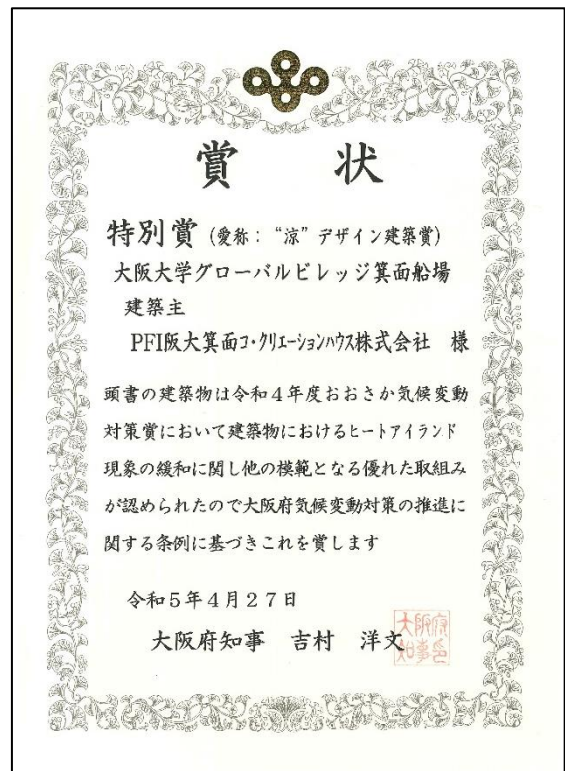 賞 状
特別賞 (愛称： “涼” デザイン建築賞)
大阪大学グローバルビレッジ箕面船場
建築主
PFI阪大箕面コ・クリエーションハウス株式会社 様
頭書の建築物は令和４年度おおさか気候変動
対策賞において建築物におけるヒートアイランド
現象の緩和に関し他の模範となる優れた取組み
が認められたので大阪府気候変動対策の推進に
関する条例に基づきこれを賞します
令和５年４月２７日
大阪府知事 吉村 洋文
大阪府
知事印